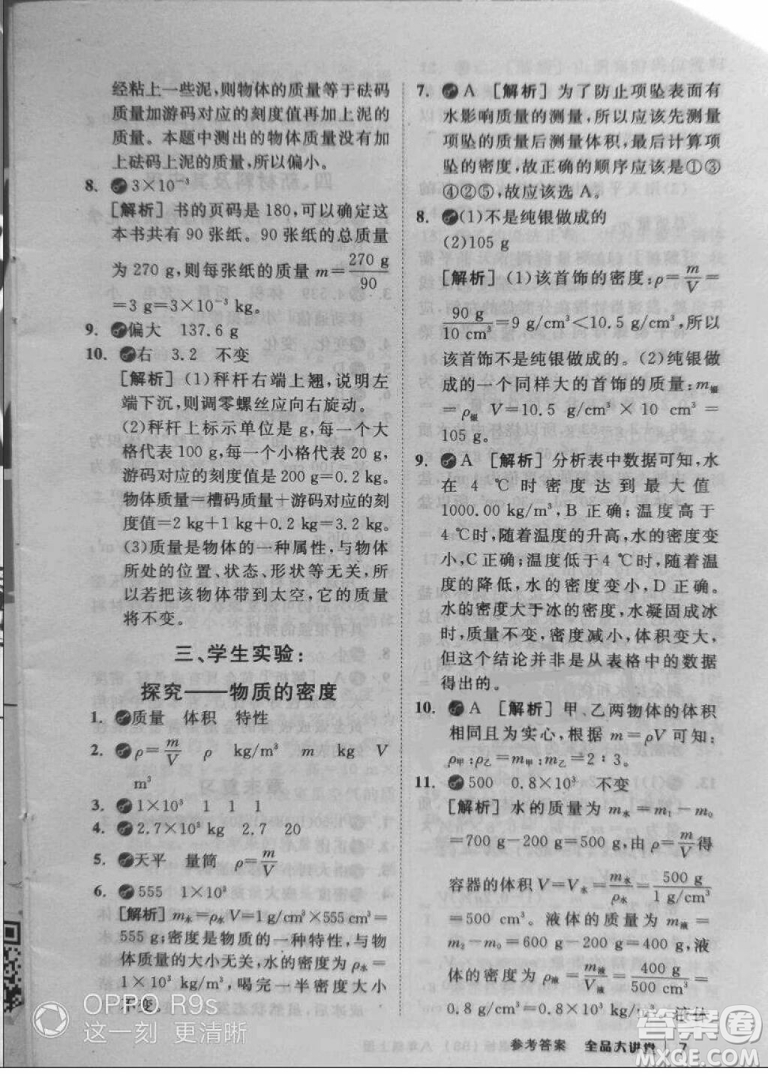 经粘上一些泥,则物体的质量等于砝码
质量加游码对应的刻度值再加上泥的
质量。本题中测出的物体质量没有加
上砝码上泥的质量,所以偏小。
8. 3×10⁻³
[解析] 书的页码是180,可以确定这
本书共有90张纸。90张纸的总质量
为270 g,则每张纸的质量 m=270 g/90
=3 g=3×10⁻³ kg。
9. 偏大 137.6 g
10. 右 3.2 不变
[解析] (1)秤杆右端上翘,说明左
端下沉,则调零螺丝应向右旋动。
(2)秤杆上标示单位是 g,每一个大
格代表100 g,每一个小格代表20 g,
游码对应的刻度值是200 g=0.2 kg。
物体质量=槽码质量+游码对应的刻
度值=2 kg+1 kg+0.2 kg=3.2 kg。
(3)质量是物体的一种属性,与物体
所处的位置、状态、形状等无关,所
以若把该物体带到太空,它的质量
将不变。
三、学生实验:
探究——物质的密度
1. 质量 体积 特性
2. ρ=m/V ρ kg/m³ m kg V
m³
3. 1×10³ 1 1 1
4. 2.7×10³ kg 2.7 20
5. 天平 量筒 ρ=m/V
6. 555 1×10³
[解析] m水=ρ水V=1 g/cm³×555 cm³=
555 g;密度是物质的一种特性,与物质
质量的大小无关,水的密度是 ρ水=
1×10³ kg/m³,喝完一半密度
不变。
7. A [解析] 为了防止项坠表面有
水影响质量的测量,所以应该先测量
项坠的质量后测量体积,最后计算项
坠的密度,故正确的顺序应该是①③
④②⑤,故应该选A。
8. (1)不是纯银做成的
(2)105 g
[解析] (1)该首饰的密度:ρ=m/V=
90 g/10 cm³=9 g/cm³<10.5 g/cm³,所以
该首饰不是纯银做成的。(2)纯银做
成的一个同样大的首饰的质量:m银
=ρ银 V=10.5 g/cm³×10 cm³=
105 g。
9. A [解析] 分析表中数据可知,水
在 4 ℃时密度达到最大值
1000.00 kg/m³,B正确;温度高于
4 ℃时,随着温度的升高,水的密度变
小,C正确;温度低于4 ℃时,随着温
度的降低,水的密度变小,D正确。
水的密度大于冰的密度,水凝固成冰
时,质量不变,密度减小,体积变大,
但这个结论并非是从表格中的数据
得出的。
10. A [解析] 甲、乙两物体的体积
相同且为实心,根据 m=ρV 可知:
ρ甲:ρ乙=m甲:m乙=2:3。
11. 500 0.8×10³ 不变
[解析] 水的质量为 m水=m₁-m₀
=700 g-200 g=500 g,由 ρ=m/V 得
容器的容积 V=V水=m水/ρ水=500 g/1 g/cm³
=500 cm³。液体的质量为 m液=
m₂-m₀=600 g-200 g=400 g,液
体的密度为 ρ液=m液/V=400 g/500 cm³=
0.8 g/cm³=0.8×10³ kg/m³。液体
OPPO R9s
这一刻 更清晰
参考答案 全品大讲堂 7
答案圈
MXQE.COM